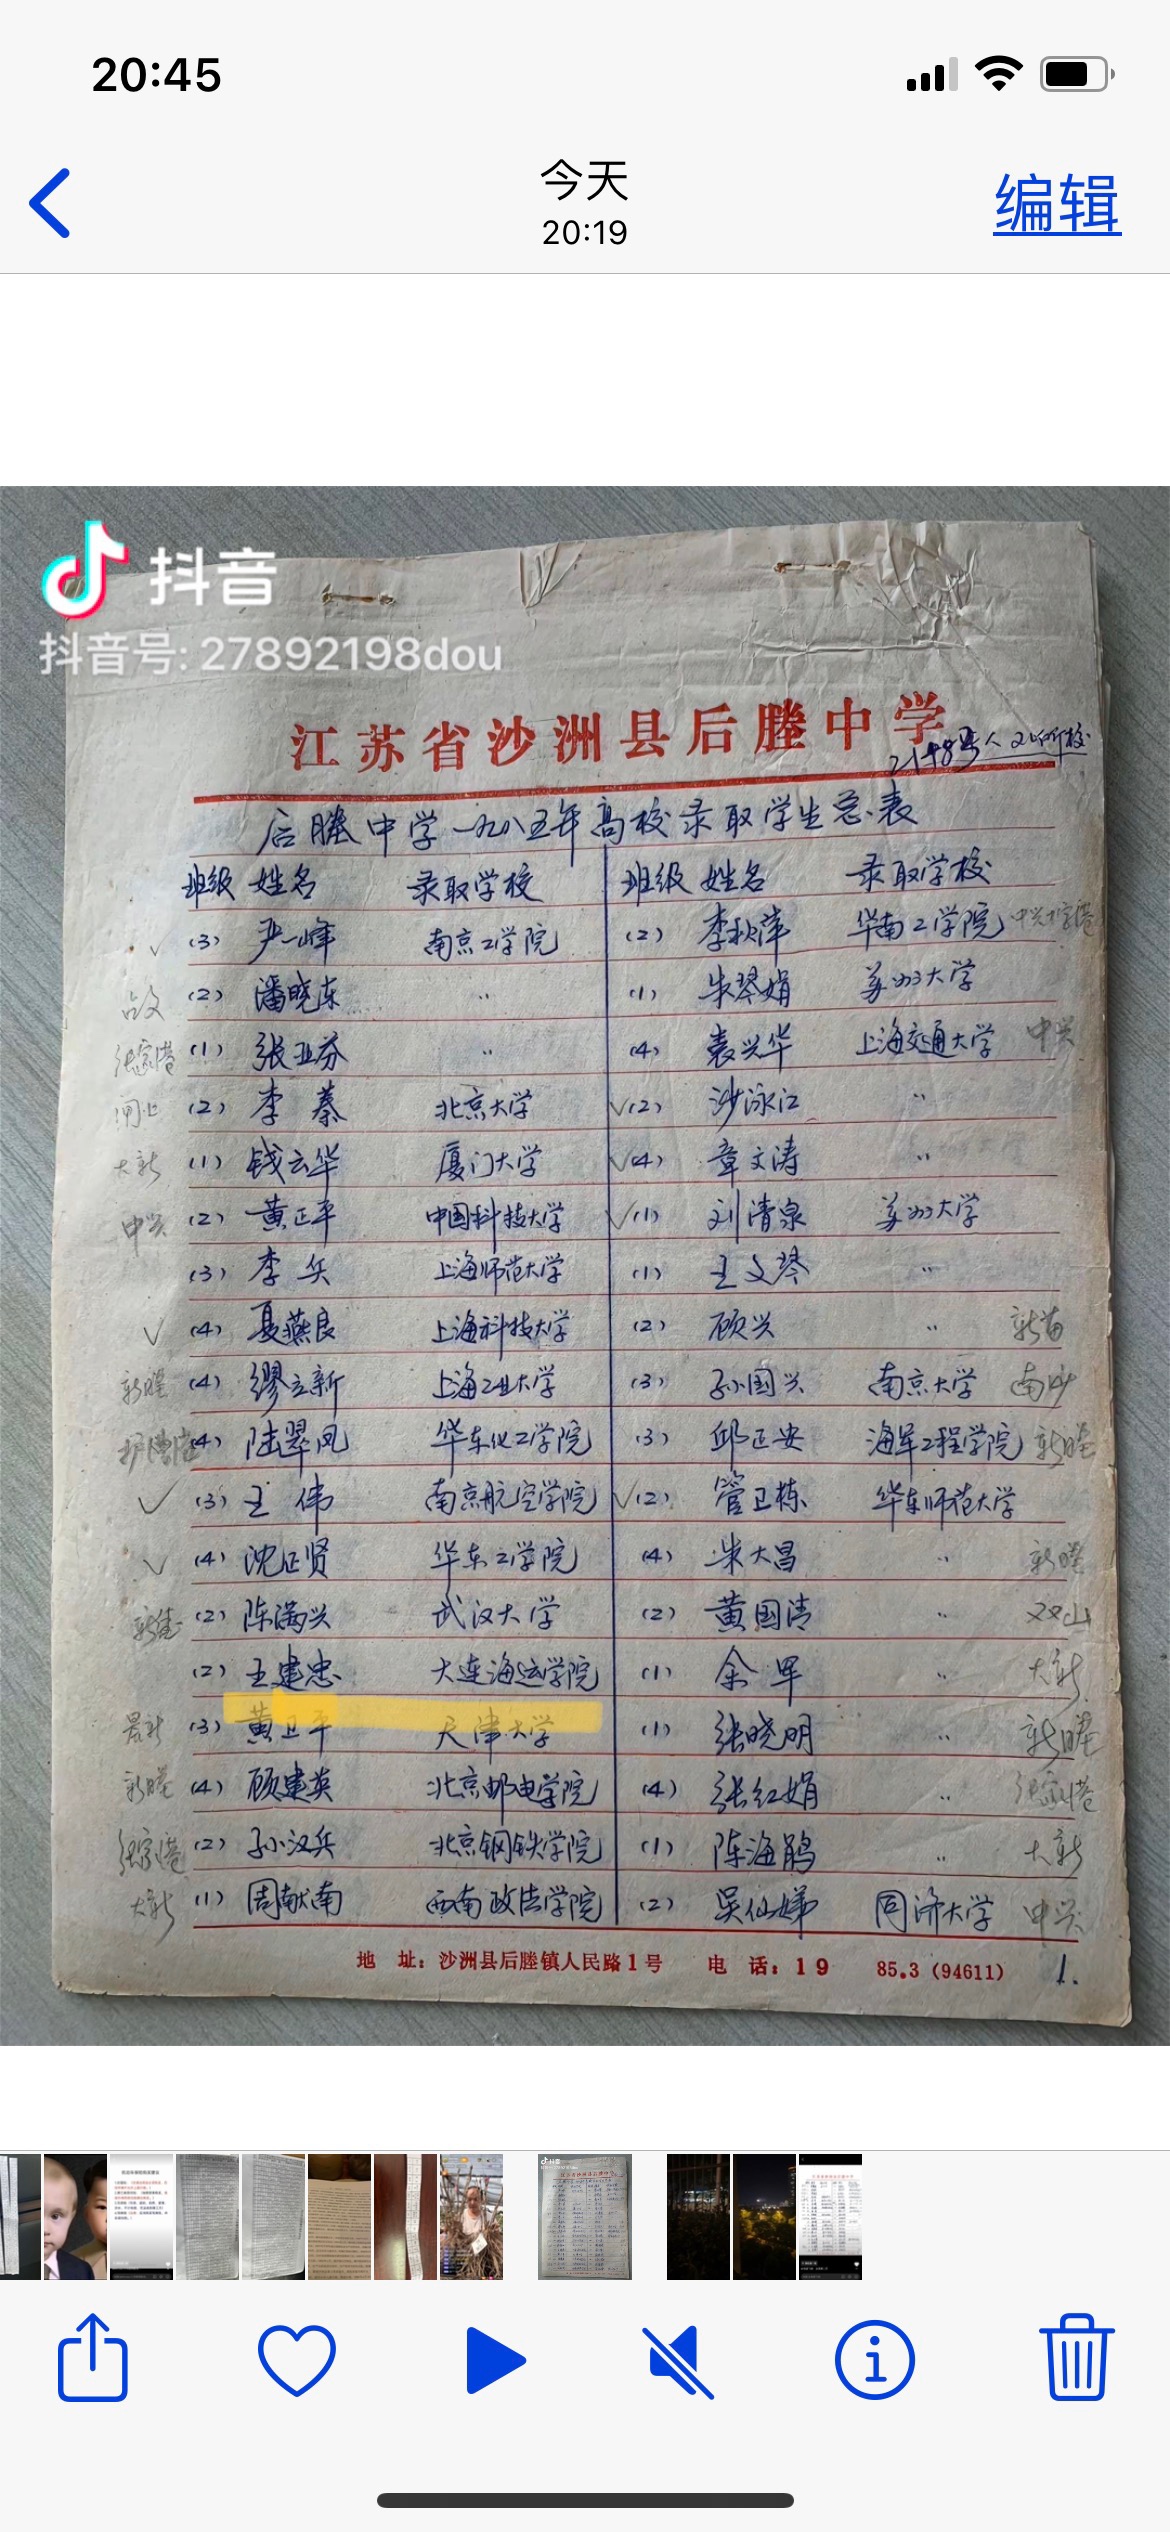 20:45
今天
20:19
编辑
抖音
抖音号: 27892198dou
江苏省沙洲县后塍中学
后塍中学一九八五年高校录取学生总表
班级 姓名 录取学校 班级 姓名 录取学校
✓ (3) 严一峰 南京工学院 (2) 李秋萍 华南工学院
(2) 潘晓东 〃 (1) 朱琴娟 苏州大学
张家港 (1) 张亚芬 〃 (4) 袁兴华 上海交通大学 中兴
闸上 (2) 李蓁 北京大学 ✓(2) 沙泳江 〃
大新 (1) 钱云华 厦门大学 ✓(4) 章文涛 〃
中兴 (2) 黄正平 中国科技大学 ✓(1) 刘清泉 苏州大学
(3) 李兵 上海师范大学 (1) 王文琴 〃
✓ (4) 聂燕良 上海科技大学 (2) 顾兴 〃
新塍 (4) 缪立新 上海工业大学 (3) 孙国兴 南京大学 南沙
(4) 陆翠凤 华东化工学院 (3) 邱正安 海军工程学院 新塍
✓ (3) 王伟 南京航空学院 ✓(2) 管卫栋 华东师范大学
✓ (4) 沈正贤 华东工学院 (4) 朱大昌 〃 新塍
(2) 陈满兴 武汉大学 (2) 黄国清 〃 双山
(2) 王建忠 大连海运学院 (1) 余军 〃 大新
(3) 黄卫平 天津大学 (1) 张晓明 〃 新塍
新塍 (4) 顾建英 北京邮电学院 (4) 张红娟 〃 张家港
张家港 (2) 孙汉兵 北京钢铁学院 (1) 陈海鹃 〃 大新
大新 (1) 周献南 西南政法学院 (2) 吴仙娣 同济大学 中兴
地 址：沙洲县后塍镇人民路1号 电 话：19 85.3 (94611) 1.